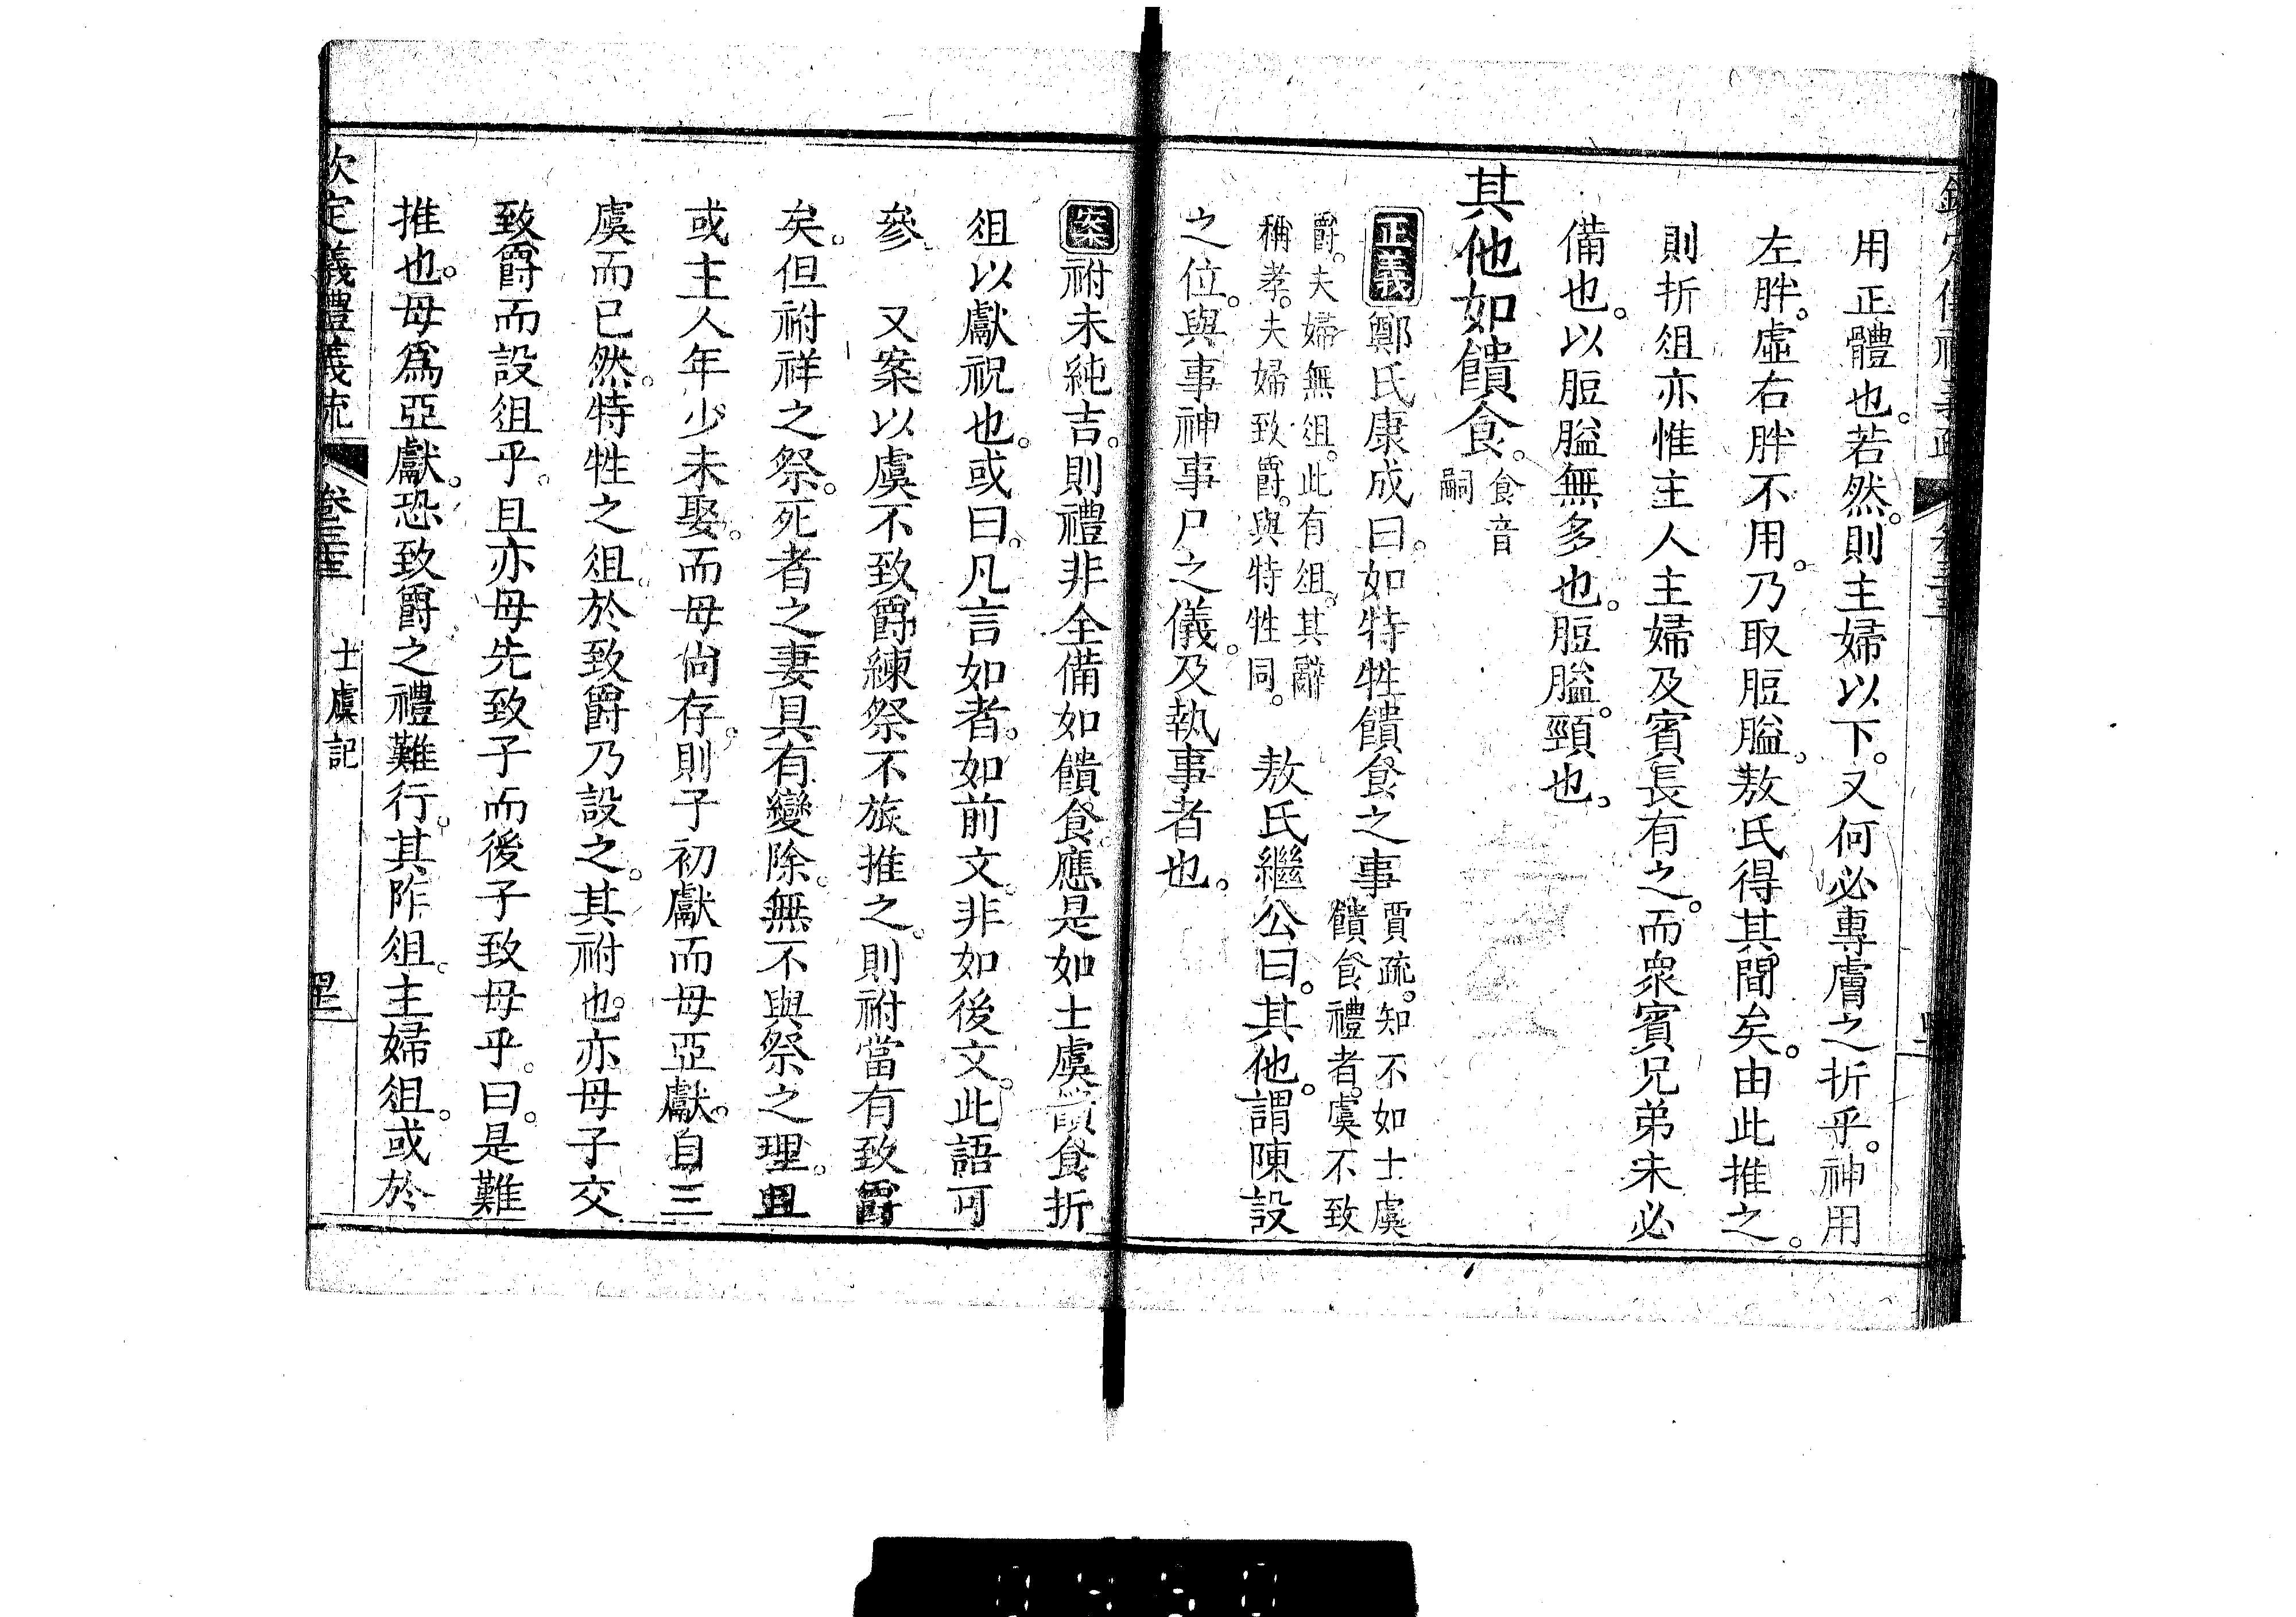 用正體也。若然。則主婦以下。又何必專膚之折乎。神用
左胖。虛右胖不用。乃取脰膉。敖氏得其間矣。由此推之。
則折俎亦惟主人主婦及賓長有之。而衆賓兄弟未必
備也。以脰膉無多也。脰膉。頸也。
其他如饋食。
食音
嗣
正義鄭氏康成曰。如特牲饋食之事
賈疏。知不如士虞
饋食禮者。虞不致
爵。夫婦無俎。此有俎。其辭
稱孝。夫婦致爵。與特牲同。
敖氏繼公曰。其他。謂陳設
之位。與事神事尸之儀。及執事者也。
案祔未純吉。則禮非全備如饋食。應是如士虞饋食折
俎以獻祝也。或曰。凡言如者。如前文。非如後文。此語可
參。　又案以虞不致爵。練祭不旅推之。則祔當有致爵
矣。但祔祥之祭。死者之妻具有變除。無不與祭之理。且
或主人年少未娶。而母尙存。則子初獻而母亞獻。自三
虞而已然。特牲之俎。於致爵乃設之。其祔也。亦母子交
致爵而設俎乎。且亦母先致子而後子致母乎。曰。是難
推也。母爲亞獻。恐致爵之禮難行。其阼俎。主婦俎。或於
欽定儀禮義疏
士虞記